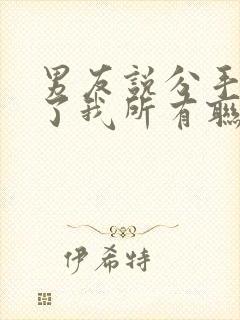 男友說分手
了我所有聯
伊希特